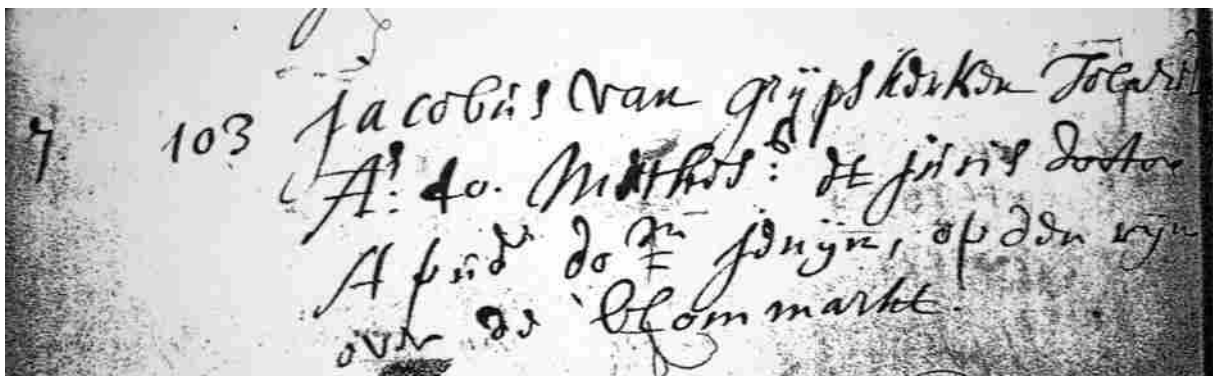 7 103 Jacobus van Grÿpskerken
A.º 40. Mathes: et juris doctor
Apud do.m , op den rijn
over de blommarkt.